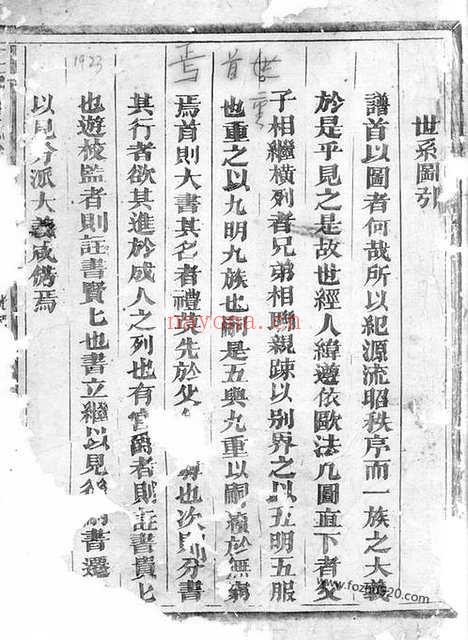 世系圖引
譜首以圖者何哉所以紀源流昭秩序而一族之大義
於是乎見之是故世經人緯遵依歐法凡圖直下者父
子相繼橫列者兄弟相聯親踈以別界之以五明五服
也重之以九明九族也嗣是五與九重以嗣續於無窮
焉首則大書其名者禮莫先於父 也次則分書
其行者欲其進於成人之列也有官爵者則註書貴上
也遊校監者則註書賢上也書立繼以見 書遷
以見分派大義咸備焉
1923
焉
首
世
重
nayona.cn
www.fozhu920.com